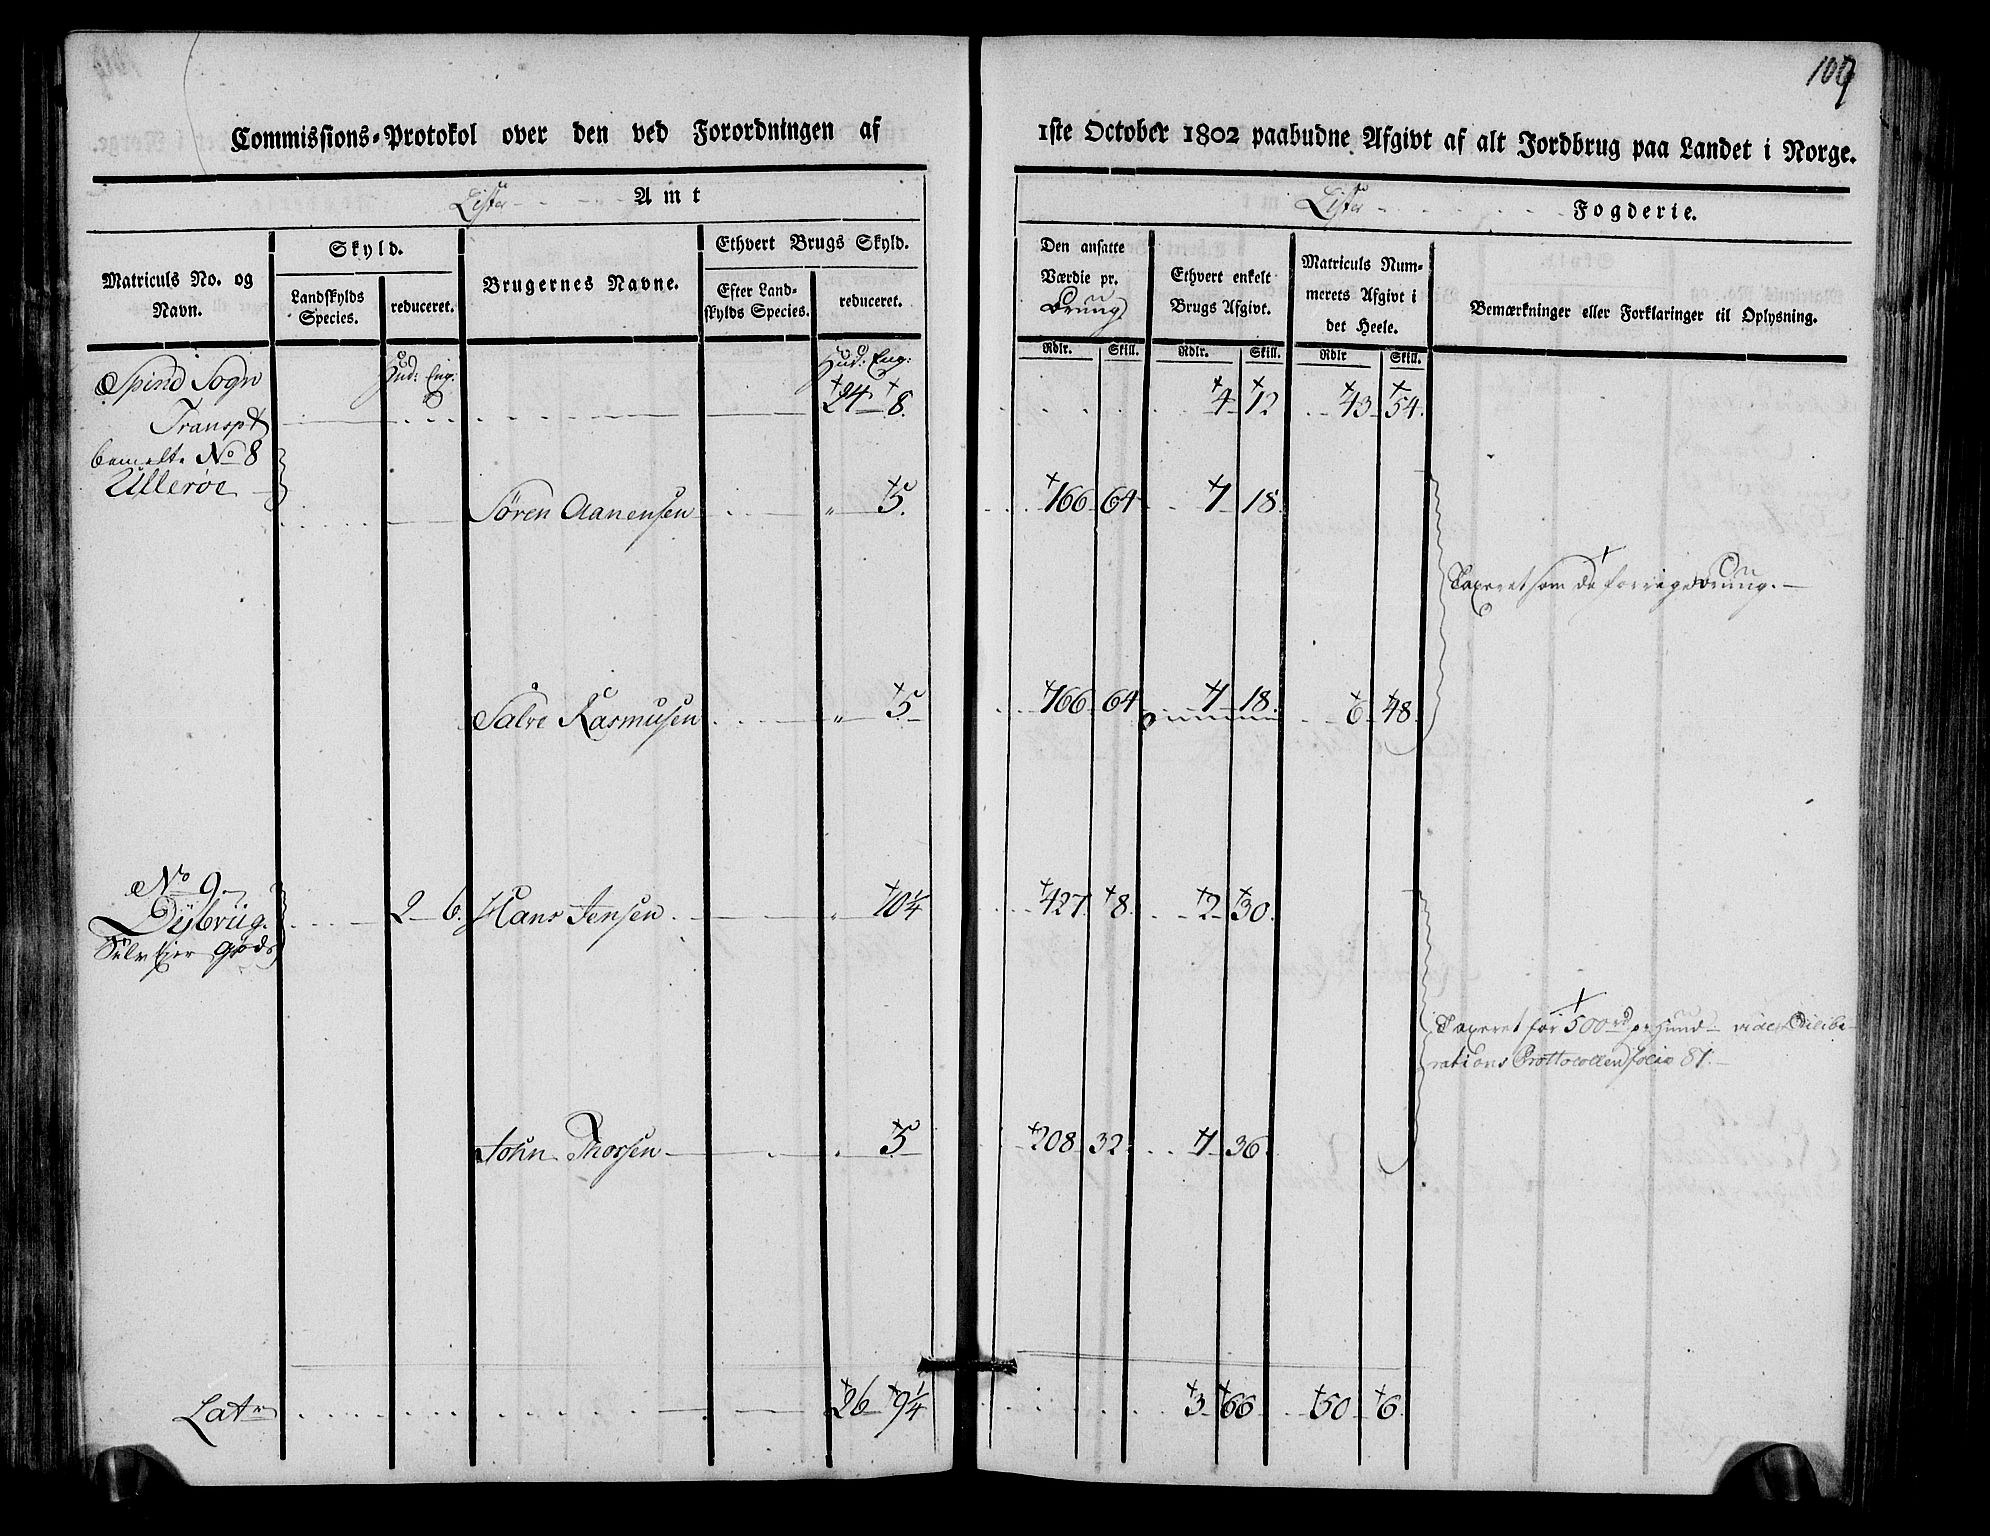 109
Commissions-Protokol over den ved Forordningen af 1ste October 1802 paabudne Afgivt af alt Jordbrug paa Landet i Norge.
Lister Amt
Lister Fogderie.
Matriculs No. og Navn.
Skyld.
Landskylds Species.
reduceret.
Brugernes Navne.
Ethvert Brugs Skyld.
Efter Landskylds Species.
reduceret.
Den ansatte Værdie pr. Brug
Ethvert enkelt Brugs Afgivt.
Matriculs Nummerets Afgivt i det Heele.
Bemærkninger eller Forklaringer til Oplysning.
Rdlr. Skill. Rdlr. Skill. Rdlr Skill.
Spind Sogn Hud: Eng. Hud: Eng:
Transpt 24 8. 4 12 43 54.
bemelte No 8
Ullerøe
Søren Aanensen " 5. 166 64 1 18
Taxeret som de forrige Brug.
Salve Rasmusen " 5 166 64 1 18. 6 48.
No 9
Dybvüg. 2 6. Hans Jensen " 10 1/4 427 8. 2 30.
Selv Eier Gods
Taxeret for 500 rd pr Hund vide Delibe-
rations Prottocollen folio 81.
John Thorsen " 5 208 32 1 36
Latr 26 9 1/4 3 66 50 6.